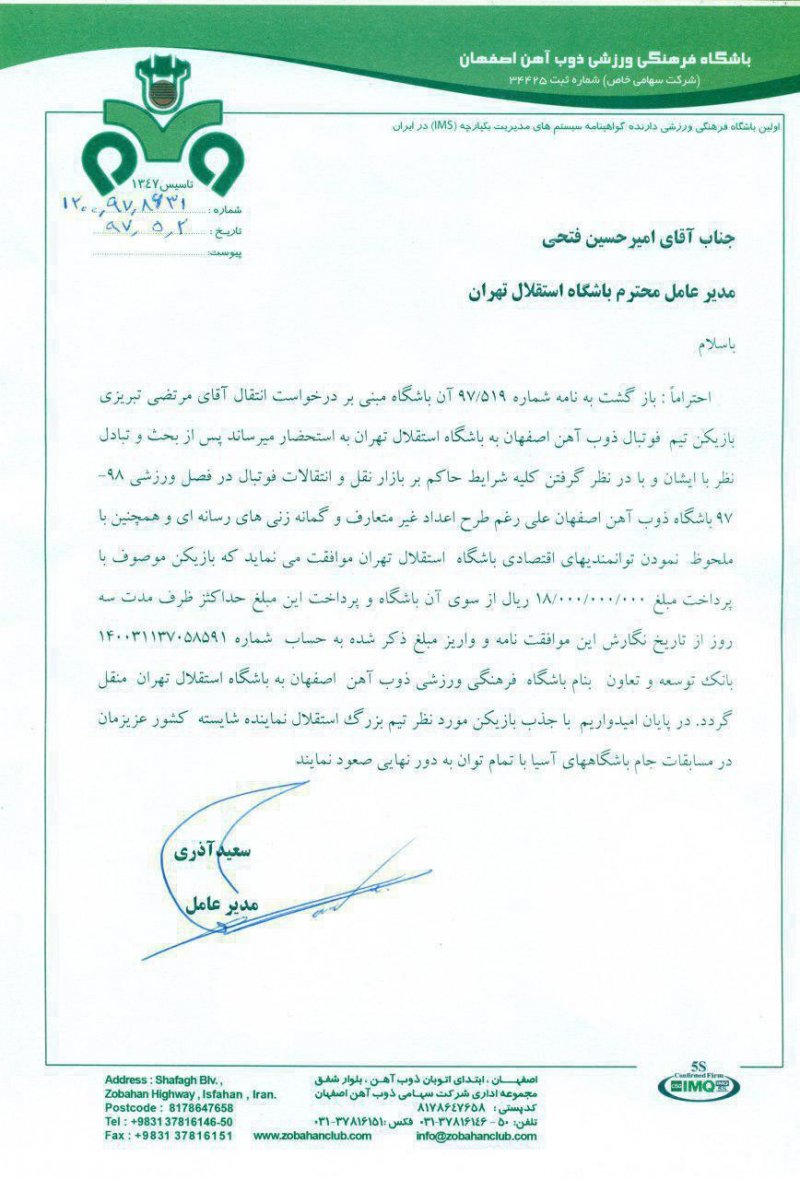 باشگاه فرهنگی ورزشی ذوب آهن اصفهان
(شرکت سهامی خاص) شماره ثبت ۳۴۴۲۵
اولین باشگاه فرهنگی ورزشی دارنده گواهینامه سیستم های مدیریت یکپارچه (IMS) در ایران
تاسیس ۱۳۴۷
شماره : ۱۲۰۰,۹۷,۸۶۳۱
تاریخ : ۹۷,۵,۲
پیوست:
جناب آقای امیرحسین فتحی
مدیر عامل محترم باشگاه استقلال تهران
باسلام
احتراماً : باز گشت به نامه شماره ۹۷/۵۱۹ آن باشگاه مبنی بر درخواست انتقال آقای مرتضی تبریزی
بازیکن تیم فوتبال ذوب آهن اصفهان به باشگاه استقلال تهران به استحضار میرساند پس از بحث و تبادل
نظر با ایشان و با در نظر گرفتن کلیه شرایط حاکم بر بازار نقل و انتقالات فوتبال در فصل ورزشی ۹۸-
۹۷ باشگاه ذوب آهن اصفهان علی رغم طرح اعداد غیر متعارف و گمانه زنی های رسانه ای و همچنین با
ملحوظ نمودن توانمندیهای اقتصادی باشگاه استقلال تهران موافقت می نماید که بازیکن موصوف با
پرداخت مبلغ ۱۸/۰۰۰/۰۰۰/۰۰۰ ریال از سوی آن باشگاه و پرداخت این مبلغ حداکثز ظرف مدت سه
روز از تاریخ نگارش این موافقت نامه و واریز مبلغ ذکر شده به حساب شماره ۱۴۰۰۳۱۱۳۷۰۵۸۵۹۱
بانک توسعه و تعاون بنام باشگاه فرهنگی ورزشی ذوب آهن اصفهان به باشگاه استقلال تهران منقل
گردد. در پایان امیدواریم با جذب بازیکن مورد نظر تیم بزرگ استقلال نماینده شایسته کشور عزیزمان
در مسابقات جام باشگاههای آسیا با تمام توان به دور نهایی صعود نمایند
سعید آذری
مدیر عامل
اصفهــان ، ابتدای اتوبان ذوب آهـن ، بلوار شفـق
مجموعه اداری شرکت سهـامی ذوب آهن اصفهان
کدپستی : ۸۱۷۸۶۴۷۶۵۸
تلفن: ۵۰ - ۳۷۸۱۶۱۴۶-۰۳۱ فکس :۳۷۸۱۶۱۵۱-۰۳۱
info@zobahanclub.com
Address : Shafagh Blv. ,
Zobahan Highway , Isfahan , Iran.
Postcode : 8178647658
Tel : +9831 37816146-50
Fax : +9831 37816151
www.zobahanclub.com
5S
Confirmed Firm
IMQ